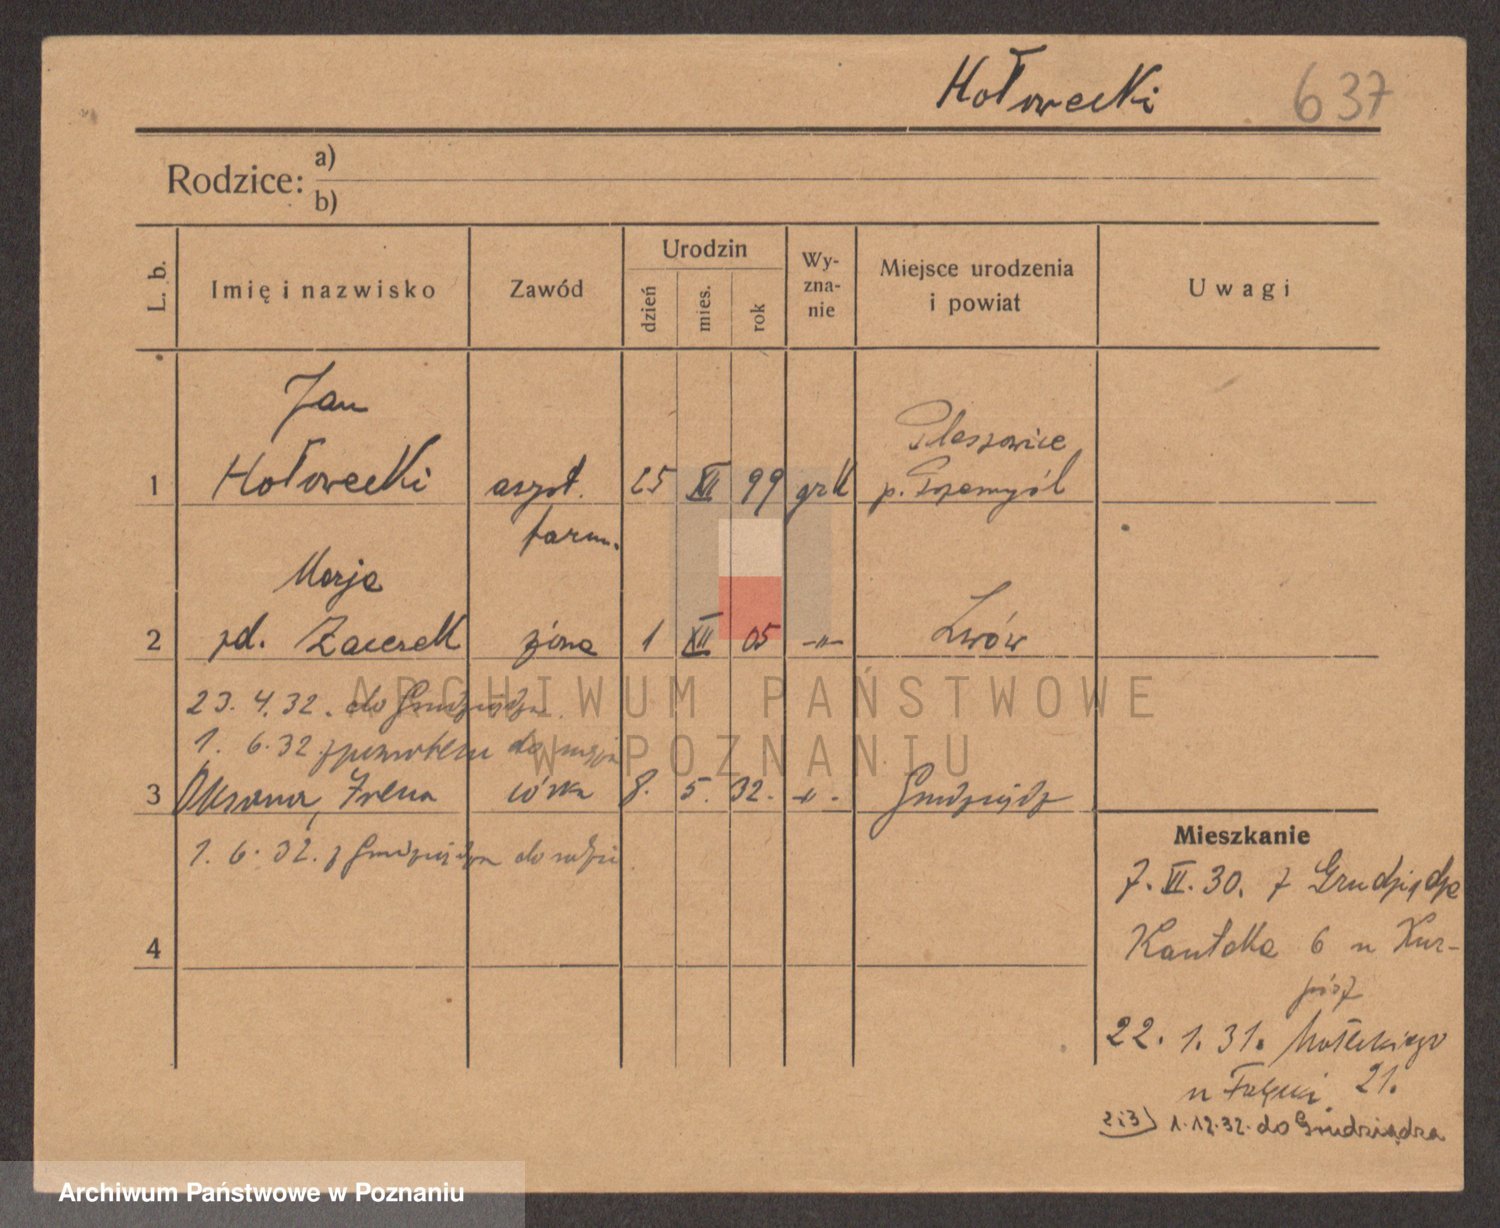 Hołowecki 637
Rodzice: a)
b)
L. b. Imię i nazwisko Zawód Urodzin dzień mies. rok Wy-zna-nie Miejsce urodzenia i powiat Uwagi
Jan
Pleszowice
1 Hołowecki asyst. 25 XII 99 grk p. Przemyśl
farm.
Marja
2 zd. żona 1 XII 05 -"- Lwów
23. 4. 32. do Grudziądza
1. 6. 32 z powrotem do męża
3 Oksana, Irena córka 8. 5. 32. -"- Grudziądz
Mieszkanie
1. 6. 32. z Grudziądza do rodzi
7. VI. 30. z Grudziądza
4
6
22. 1. 31. Małeckiego
21.
2 i 3) 1.12.32. do Grudziądza
ARCHIWUM PAŃSTWOWE
W POZNANIU
Archiwum Państwowe w Poznaniu